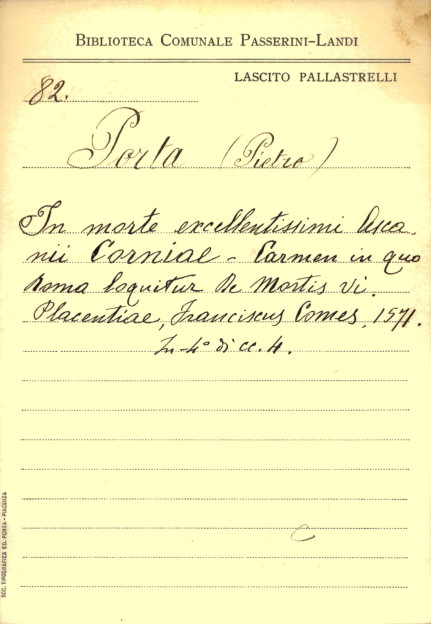 BIBLIOTECA COMUNALE PASSERINI-LANDI
LASCITO PALLASTRELLI
82.
Porta (Pietro)
In morte excellentissimi Asca-
nii Corniae - Carmen in quo
Roma loquitur De Mortis vi.
Placentiae, Franciscus Comes, 1571.
In-4° di cc. 4.
C
SOC. TIPOGRAFICA ED. PORTA - PIACENZA